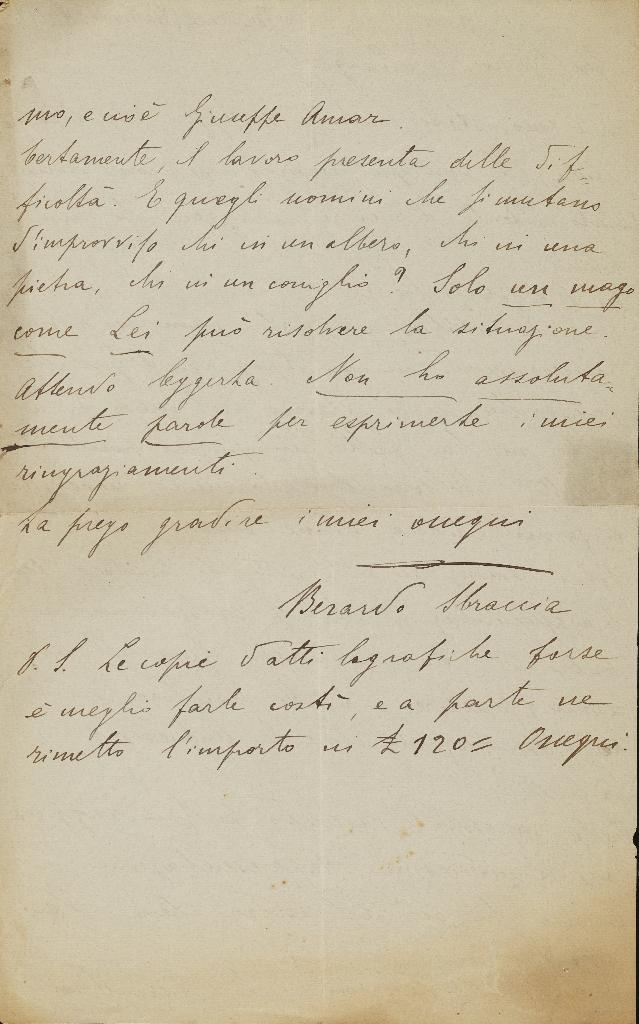 mo, e cioè Giuseppe Amar.
Certamente, il lavoro presenta delle dif-
ficoltà. E quegli uomini che si mutano
d'improvviso chi in un albero, chi in una
pietra, chi in un coniglio? Solo un mago
come Lei può risolvere la situazione.
Attendo leggerla. Non ho assoluta-
mente parole per esprimerle i miei
ringraziamenti.
La prego gradire i miei ossequi
Berardo Sbraccia
P. S. Le copie dattilografiche forse
è meglio farle costì, e a parte ne
rimetto l'importo in £ 120= Ossequi.